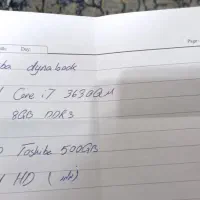 Day:
Page
ba dynabook
Core i7 3630QM
8GB DDR3
Toshiba 500GB
HD (